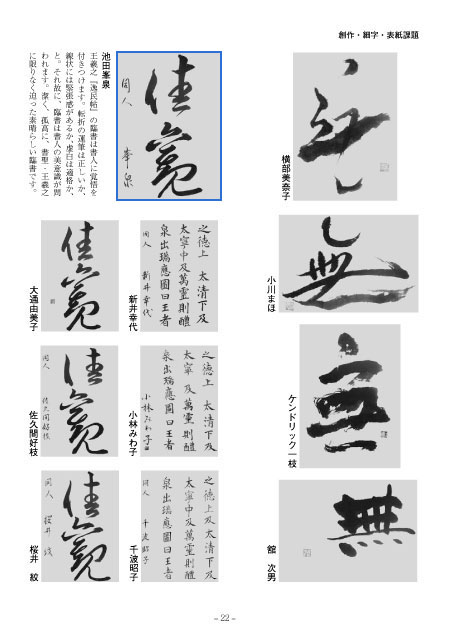 創作・細字・表紙課題
横部美奈子
小川まほ
ケンドリック一枝
舘　次男
池田峯泉
王羲之『逸民帖』の臨書は書人に覚悟を
付きつけます。転折の運筆は正しいか、
線状には緊張感があるか、虚白は適格か、
と。それ故に、臨書は書人の美意識が問
われます。潔く、孤高に、書聖・王羲之
に限りなく迫った素晴らしい臨書です。
佳
寛
同人
峯泉
之徳上　太清下及
太寧中及萬靈則醴
泉出瑞應圖曰王者
同人　新井幸代
新井幸代
佳
寛
大通由美子
之徳上　太清下及
太寧及萬靈則醴
泉出瑞應圖曰王者
小林みわ子
小林みわ子
佳
寛
同人　佐久間好枝
佐久間好枝
之徳上及太清下及
太寧中及萬靈則醴
泉出瑞應圖曰王者
同人　千波昭子
千波昭子
佳
寛
同人　桜井紋
桜井　紋
無
無
－22－